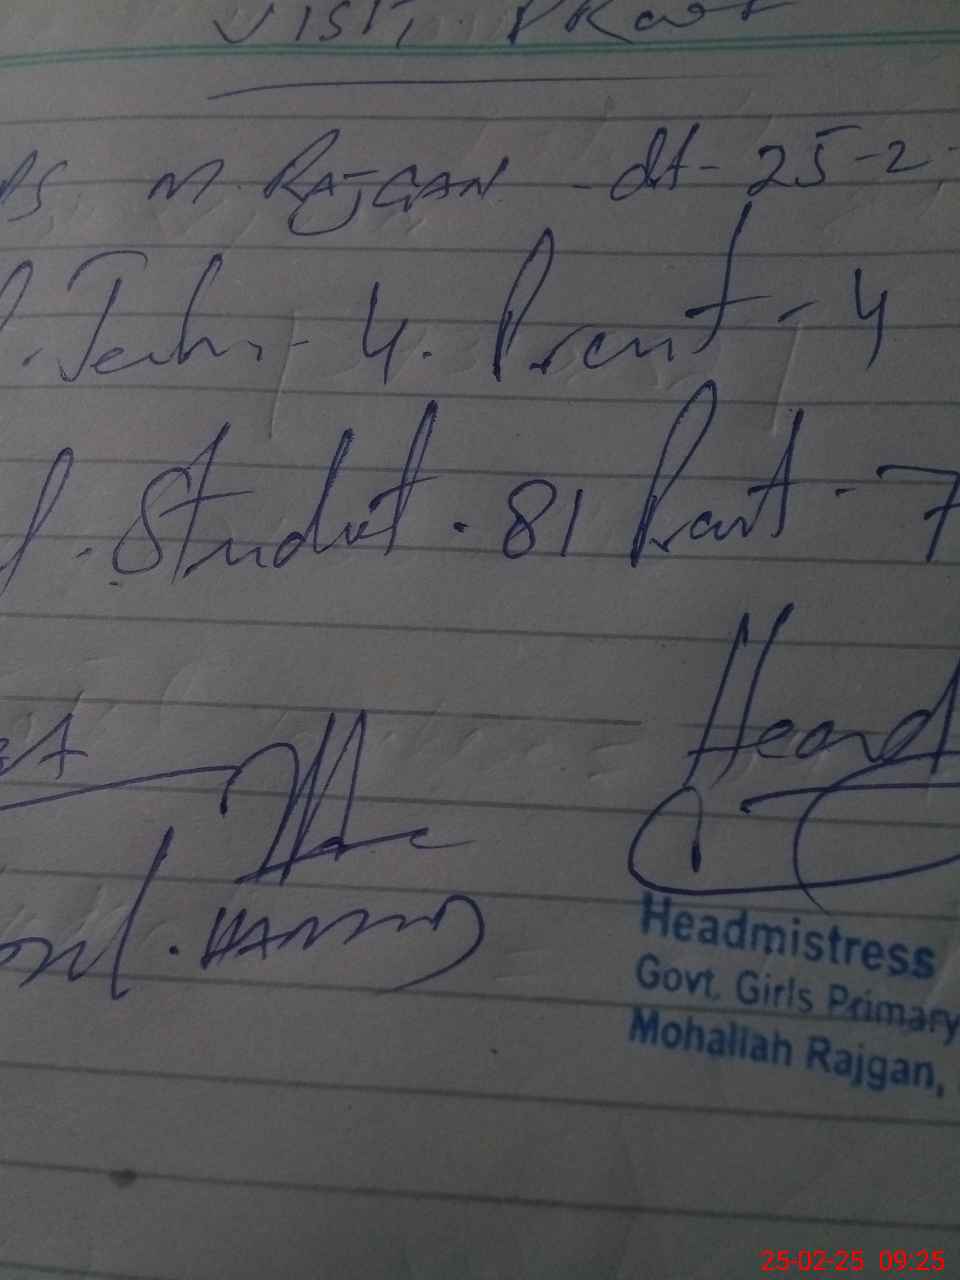 VISIT PROOF
PS M. RAJGAN - dt - 25-2-
. Teacher - 4. Present - 4
. Student . 81 Present - 7
Head
Headmistress
Govt. Girls Primary
Mohallah Rajgan,
25-02-25 09:25